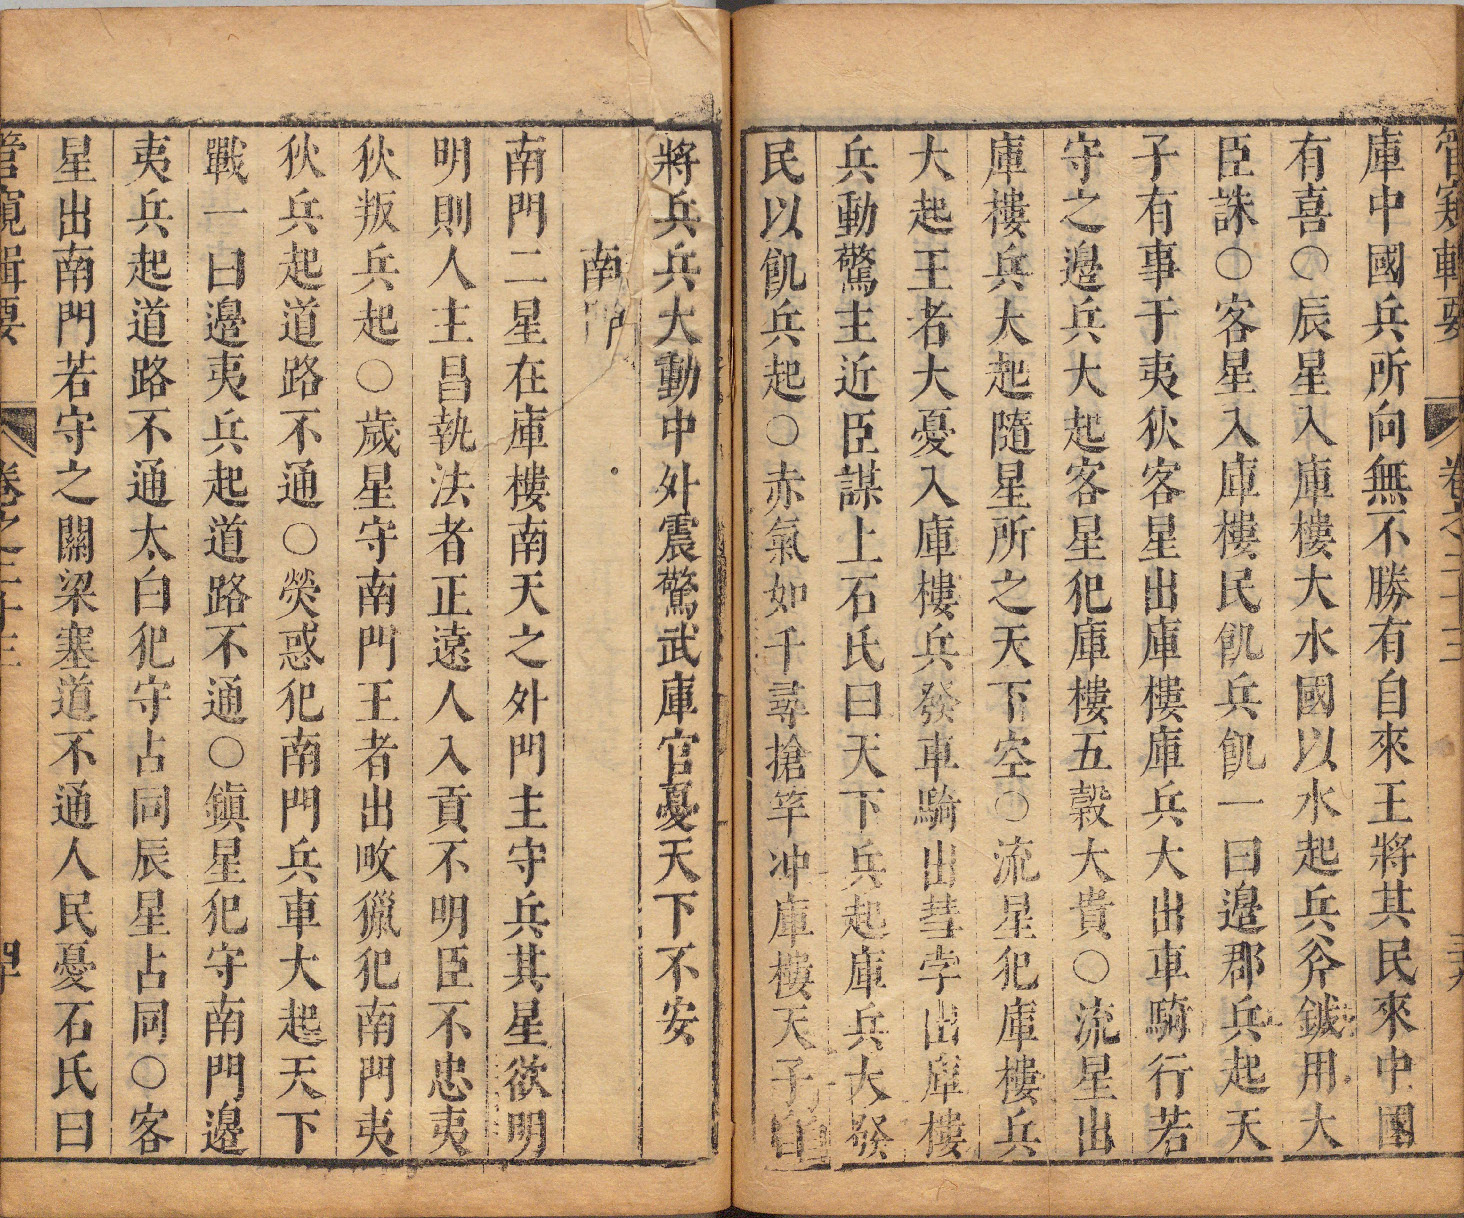 管窺輯要
卷之二十三
三十九
庫中國兵所向無不勝有自來王將其民來中國
有喜○辰星入庫樓大水國以水起兵斧鉞用大
臣誅○客星入庫樓民飢兵飢一曰邊郡兵起天
子有事于夷狄客星出庫樓庫兵大出車騎行若
守之邊兵大起客星犯庫樓五穀大貴○流星出
庫樓兵大起隨星所之天下空○流星犯庫樓兵
大起王者大憂入庫樓兵發車騎出彗孛出庫樓
兵動驚主近臣謀上石氏曰天下兵起庫兵大發
民以飢兵起○赤氣如千尋搶竿冲庫樓天子自
將兵兵大動中外震驚武庫官憂天下不安
南門
南門二星在庫樓南天之外門主守兵其星欲明
明則人主昌執法者正遠人入貢不明臣不忠夷
狄叛兵起○歲星守南門王者出畋獵犯南門夷
狄兵起道路不通○熒惑犯南門兵車大起天下
戰一曰邊夷兵起道路不通○鎭星犯守南門邊
夷兵起道路不通太白犯守占同辰星占同○客
星出南門若守之關梁塞道不通人民憂石氏曰
管窺輯要
卷之二十三
四十